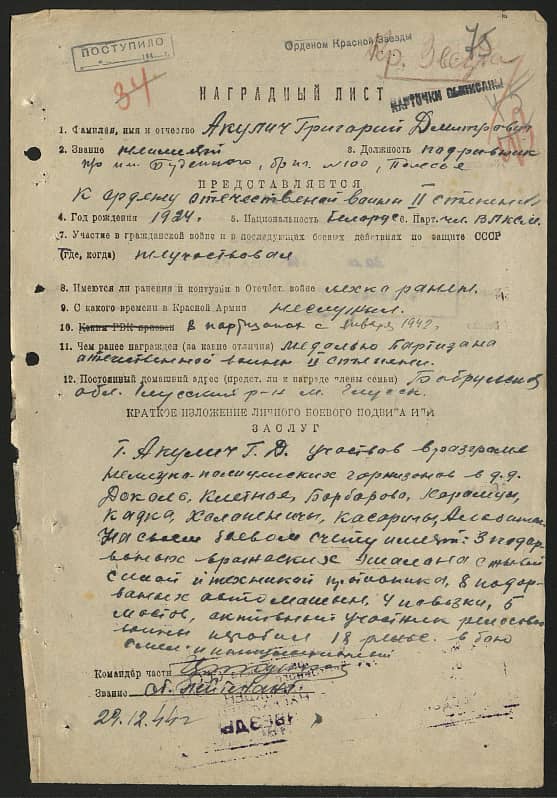 ПОСТУПИЛО
Орденом Красной Звезды
75
Кр. Звезда
34
НАГРАДНЫЙ ЛИСТ
КАРТОЧКИ ВЫПИСАНЫ
1. Фамилия, имя и отчество Акулич Григорий Дмитрович
2. Звание неимеет 3. Должность подрывник
п/о им. Буденного, бр. №100, Полесье
ПРЕДСТАВЛЯЕТСЯ
К ордену отечественой воины II степени
4. Год рождения 1924 5. Национальность белорус 6. Парт. чл. ВЛКСМ
7. Участие в гражданской войне и в последующих боевых действиях по защите СССР
(где, когда) неучаствовал
8. Имеются ли ранения и контузии в Отечест. войне легко ранен.
9. С какого времени в Красной Армии неслужил.
10. Каким РВК призван В партизанах с января 1942г.
11. Чем ранее награжден (за какие отличия) медалью Партизана
отечественной воины II степени.
12. Постоянный домашний адрес (предст. ли к награде члены семьи) Бобруйская
обл. Глусский р-н м. Глусск.
КРАТКОЕ ИЗЛОЖЕНИЕ ЛИЧНОГО БОЕВОГО ПОДВИГА ИЛИ
ЗАСЛУГ
Т. Акулич Г. Д. участвов в разгроме
немецко-полицейских гарнизонов в д.д.
Доколь, Клетное, Барбарово,
Кадка, Холопеничи, Касаричи,
На своем боевом счету имеет: 3 подор-
ваных вражеских эшалона с живой
силой и техникой противника, 8 подор-
ваных автомашын, 4 повозки, 5
мостов, активный участник рельсовой
воины подорвал 18 рельс. в бою
смел и
Командир части
Звание
29.12.44г
ЗВЕЗДЫ